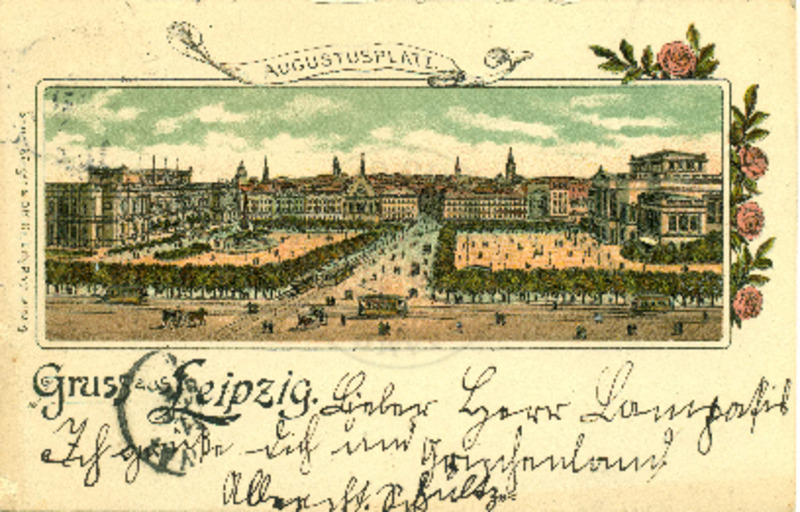 AUGUSTUSPLATZ.
Gruss aus Leipzig. Lieber Herr Lampafil
Ich grüße dich und Griechenland
Albrecht Schultz